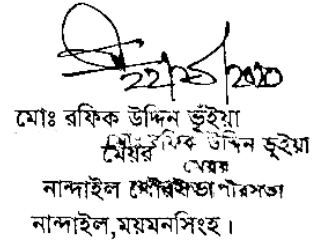 মোঃ রফিক উদ্দিন ভূঁইয়া
মোঃ রফিক উদ্দিন ভূইয়া
মেয়র
মেয়র
নান্দাইল পৌরসভা পৌরসভা
নান্দাইল,ময়মনসিংহ।